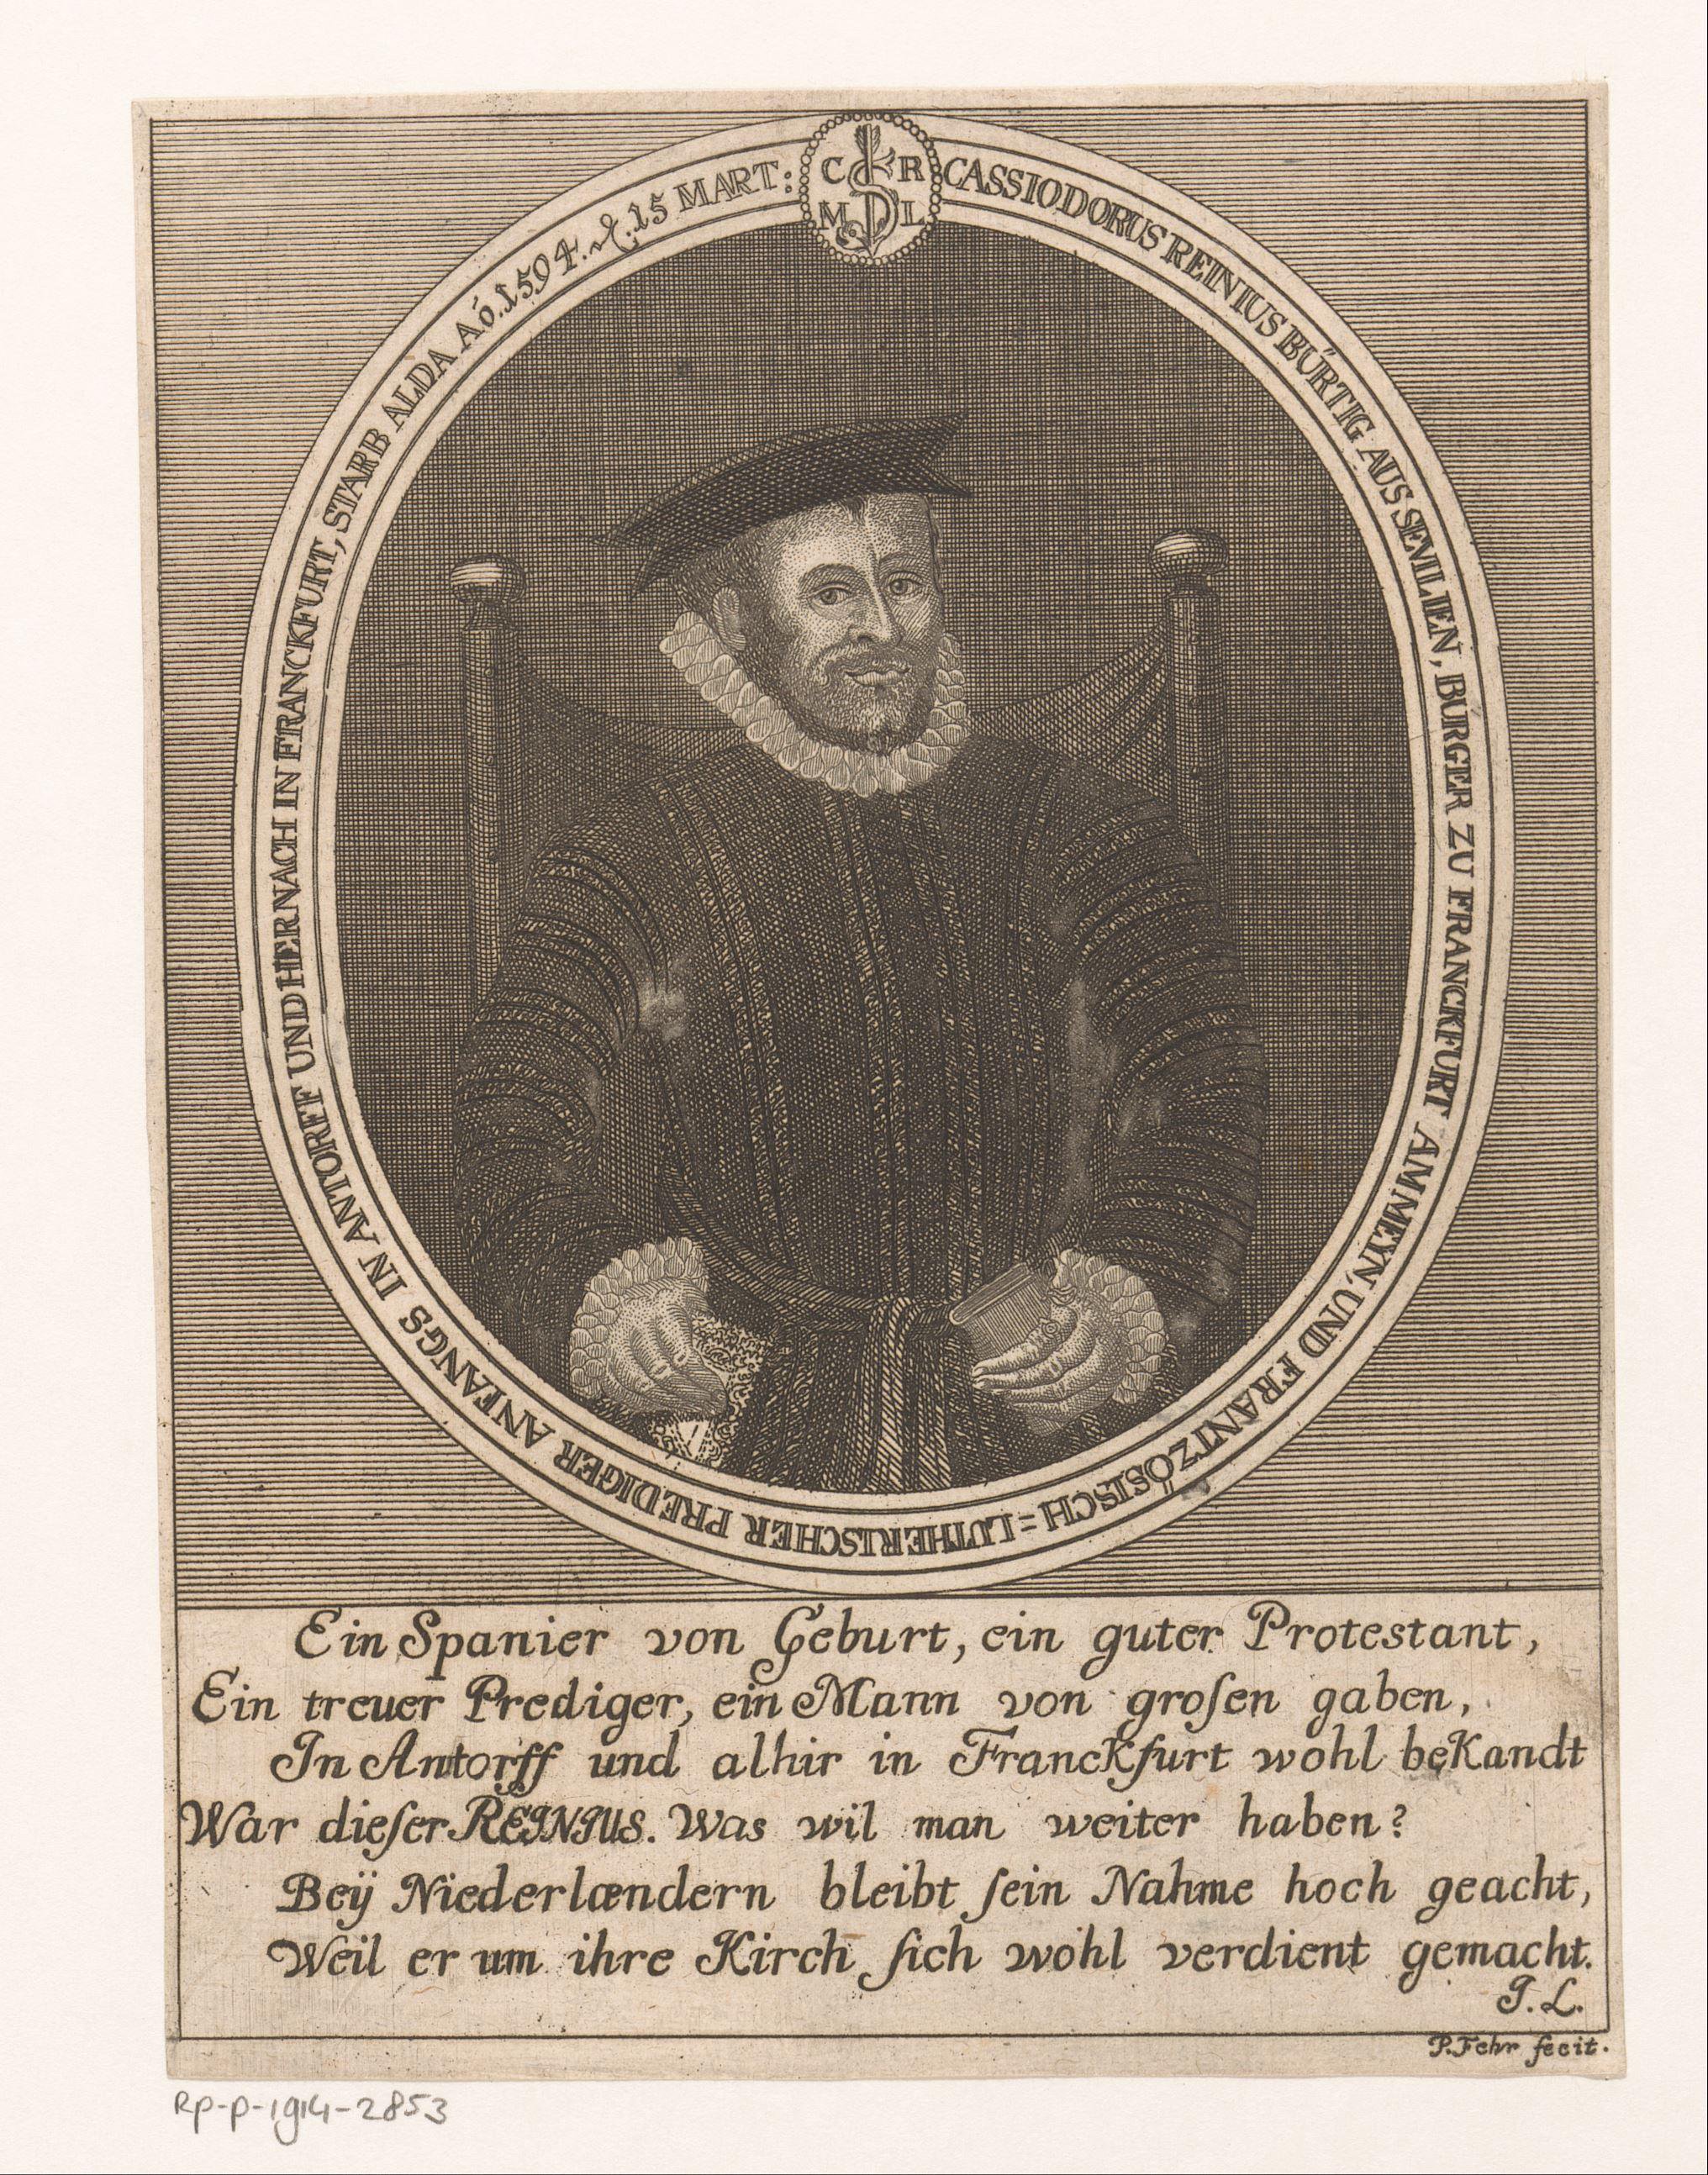 C R
M D L
CASSIODORUS REINIUS BÚRTIG AUS SEVILIEN, BÚRGER ZU FRANCKFURT AM MEYN, UND FRANTZÓSISCH=LUTHERISCHER PREDIGER ANFANGS IN ANTORFF UND HERNACH IN FRANCKFURT, STARB ALDA Aó. 1594. d. 15 MART:
Ein Spanier von Geburt, ein guter Protestant,
Ein treuer Prediger, ein Mann von groſen gaben,
In Antorff und alhir in Franckfurt wohl bekandt
War dieſer REINIUS. Was wil man weiter haben?
Beÿ Niederlændern bleibt ſein Nahme hoch geacht,
Weil er um ihre Kirch ſich wohl verdient gemacht.
J. L.
P. Fehr fecit.
RP-P-1914-2853